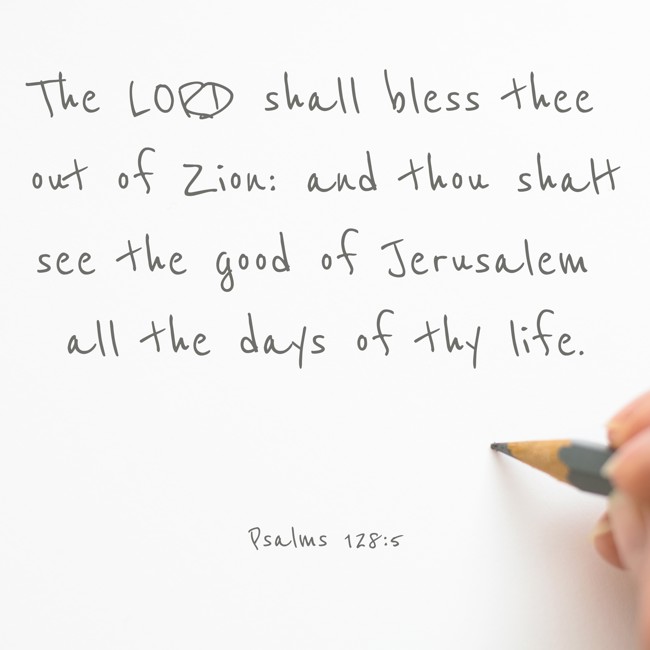 The LORD shall bless thee
out of Zion: and thou shalt
see the good of Jerusalem
all the days of thy life.
Psalms 128:5